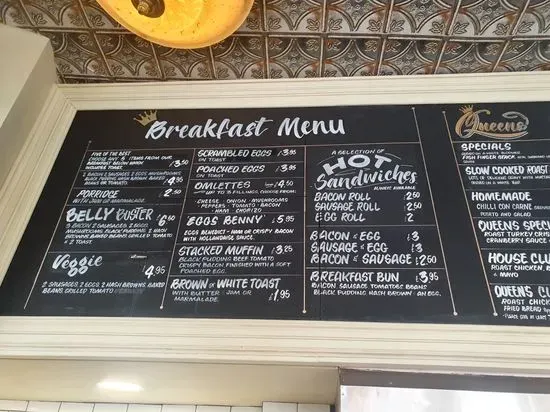 Breakfast Menu
FIVE OF THE BEST
CHOOSE ANY 5 ITEMS FROM OUR
BREAKFAST BELOW AND
INCLUDES TOAST
2 BACON 2 SAUSAGES 2 EGGS MUSHROOMS
BLACK PUDDING HASH BROWNS BAKED
BEANS OR TOMATO
£4.95
PORRIDGE £2.50
WITH JAM OR MARMALADE.
BELLY BUSTER £6.50
3 BACON 2 SAUSAGES 2 EGGS
MUSHROOMS BLACK PUDDING 2 HASH
BROWNS BAKED BEANS GRILLED TOMATO
2 TOAST
Veggie £4.95
2 SAUSAGES 2 EGGS, 2 HASH BROWNS, BAKED
BEANS GRILLED TOMATO
SCRAMBLED EGGS £3.95
ON TOAST
POACHED EGGS £3.95
ON TOAST
OMLETTES £4.50
UP TO 3 FILLINGS, CHOOSE FROM:
CHEESE ONION MUSHROOMS
PEPPERS TOMATO BACON
HAM CHORIZO
EGGS BENNY £5.95
EGGS BENEDICT - HAM OR CRISPY BACON
WITH HOLLANDAISE SAUCE
STACKED MUFFIN £3.25
BLACK PUDDING BEEF TOMATO
CRISPY BACON FINISHED WITH A SOFT
POACHED EGG
BROWN OR WHITE TOAST
WITH BUTTER - JAM OR £1.95
MARMALADE.
A SELECTION OF
HOT
Sandwiches
ALWAYS AVAILABLE
BACON ROLL £2.50
SAUSAGE ROLL £2.50
EGG ROLL £2
BACON & EGG £3
SAUSAGE & EGG £3
BACON & SAUSAGE £2.50
BREAKFAST BUN £3.95
BACON SAUSAGE TOMATOES BEANS
BLACK PUDDING HASH BROWN - AN EGG.
Queens
SPECIALS
FISH FINGER
SLOW COOKED ROAST
ORDERED IN A WHITE BAP
HOMEMADE
CHILLI CON CARNE
POTATO AND SALAD
QUEENS SPECIAL
ROAST TURKEY CRISP
CRANBERRY SAUCE
HOUSE CLU
ROAST CHICKEN, B
& MAYO
QUEENS CL
ROAST CHICK
FRIED BREAD